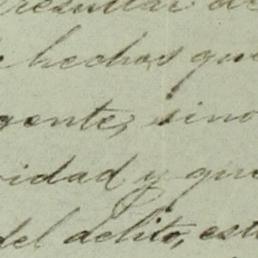 resultar de
hechos que
gente, sino
vidad y que
del delito, est